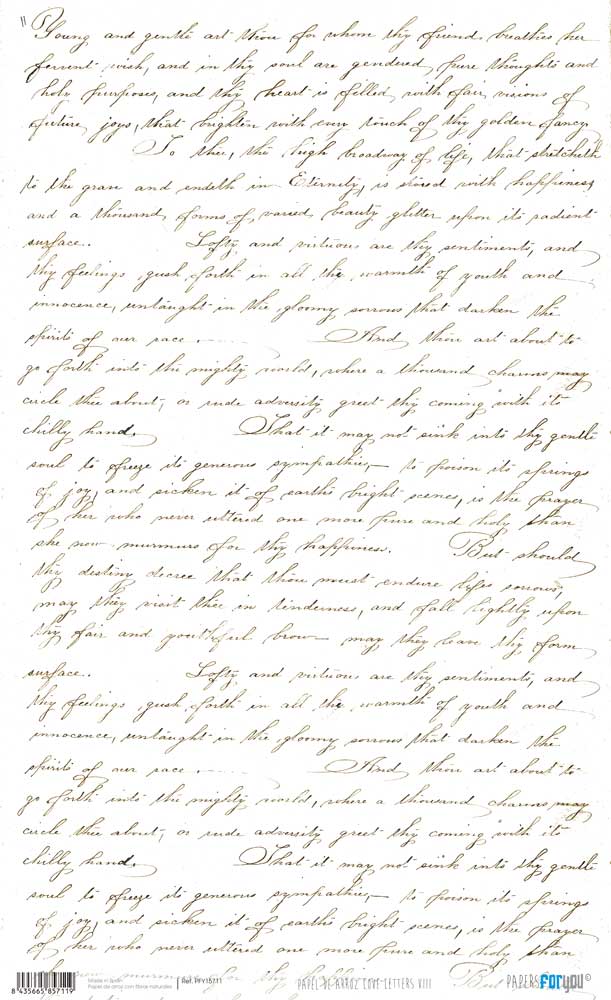 "Young and gentle art thou for whom thy friend breathes her
fervent wish, and in thy soul are gendered pure thoughts and
holy purposes, and thy heart is filled with fair visions of
future joys, that brighten with every touch of thy golden fancy
To thee, the high broadway of life, that stretcheth
to the grave and endeth in Eternity, is stored with happiness
and a thousand forms of varied beauty glitter upon its radient
surface.. Lofty and virtuous are thy sentiments, and
thy feelings gush forth in all the warmth of youth and
innocence, untaught in the gloomy sorrows that darken the
spirits of our race. And thou art about to
go forth into the mighty world, where a thousand charms may
circle thee about, or rude adversity greet thy coming with its
chilly hand. That it may not sink into thy gentle
soul to freeze its generous sympathies,— to poison its springs
of joy, and sicken it of earth's bright scenes, is the prayer
of her who never uttered one more pure and holy than
she now murmurs for thy happiness. But should
thy destiny decree that thou must endure lifes sorrows,
may they visit thee in tenderness, and fall lightly upon
thy fair and youthful brow— may they leave thy form
surface.. Lofty and virtuous are thy sentiments, and
thy feelings gush forth in all the warmth of youth and
innocence, untaught in the gloomy sorrows that darken the
spirits of our race. And thou art about to
go forth into the mighty world, where a thousand charms may
circle thee about, or rude adversity greet thy coming with its
chilly hand. That it may not sink into thy gentle
soul to freeze its generous sympathies,— to poison its springs
of joy, and sicken it of earth's bright scenes, is the prayer
of her who never uttered one more pure and holy than
she now murmurs for thy But
8 435665 857119
Made in Spain
Papel de arroz con fibras naturales
Ref. PFY15711
PAPEL DE ARROZ LOVE LETTERS VIII
PAPERS FOR YOU©